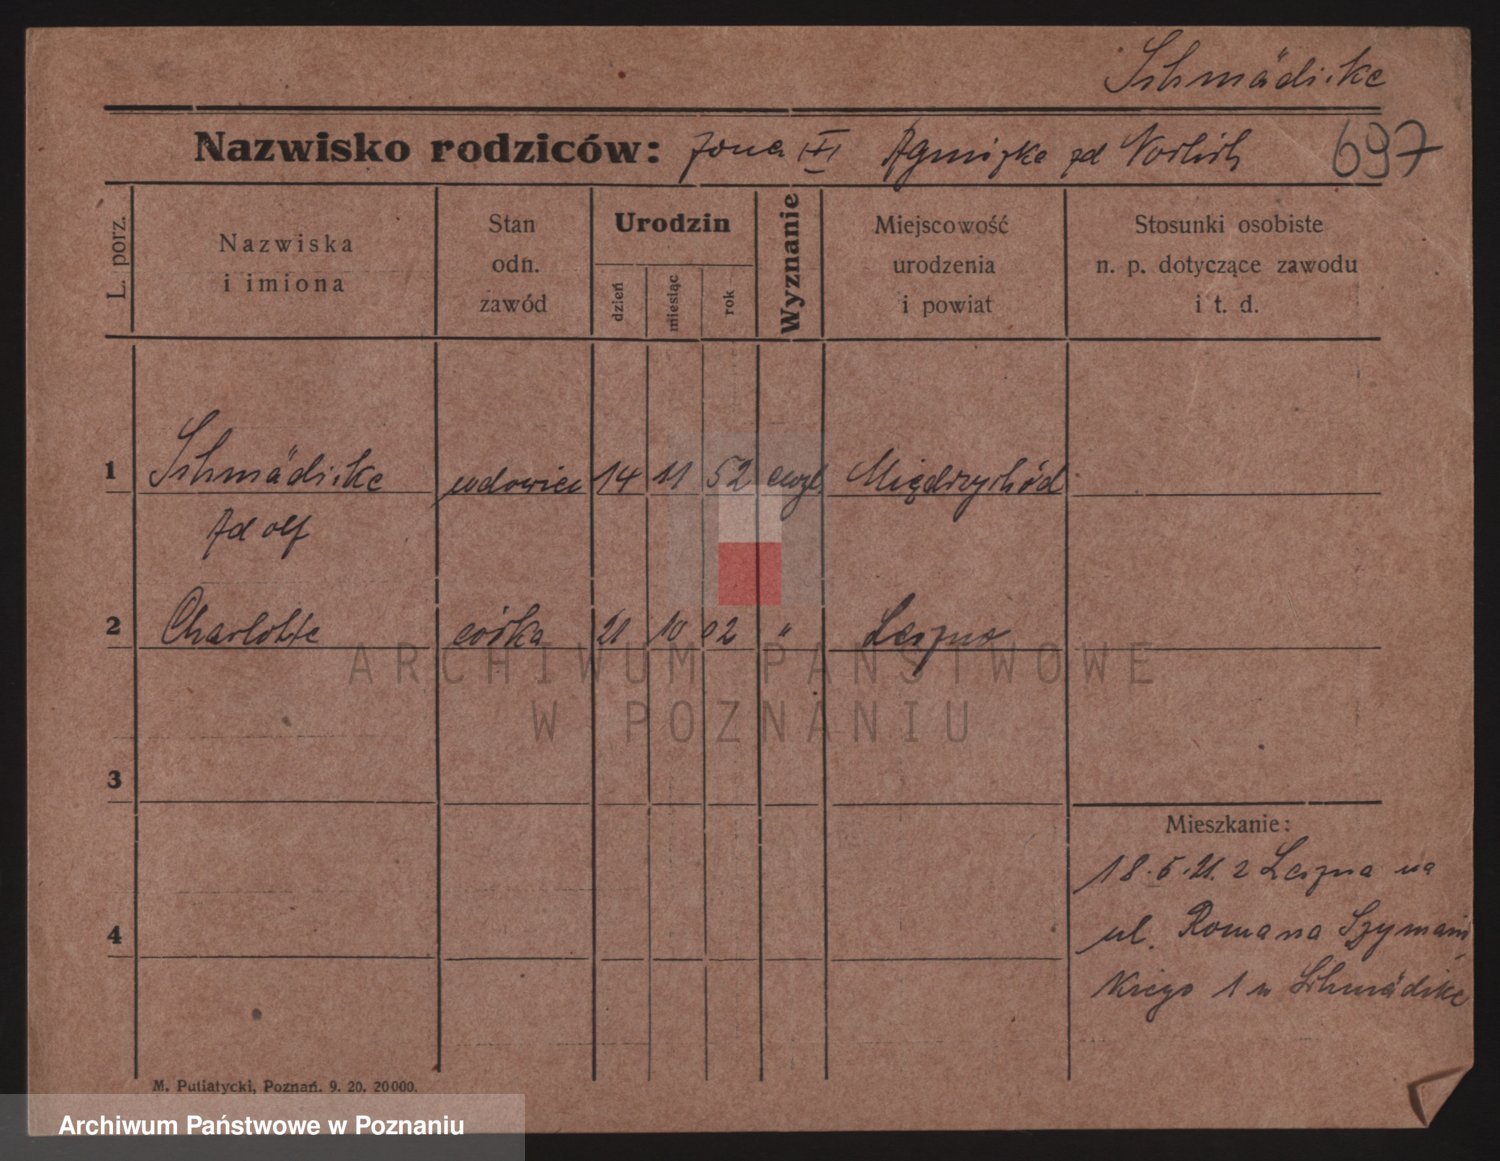 Schmädicke
Nazwisko rodziców: żona III Agnieszka zd
697
L. porz.
Nazwiska
i imiona
Stan
odn.
zawód
Urodzin
dzień
miesiąc
rok
Wyznanie
Miejscowość
urodzenia
i powiat
Stosunki osobiste
n. p. dotyczące zawodu
i t. d.
1 Schmädicke wdowiec 14 11 52 ewgl Międzychód
Adolf
2 Charlotte córka 21 10 02 " Leszno
ARCHIWUM PAŃSTWOWE
W POZNANIU
3
Mieszkanie:
18.5.21. z Leszna na
4
ul. Romana Szymań
skiego 1 u Schmädicke
M. Putiatycki, Poznań. 9. 20. 20000.
Archiwum Państwowe w Poznaniu